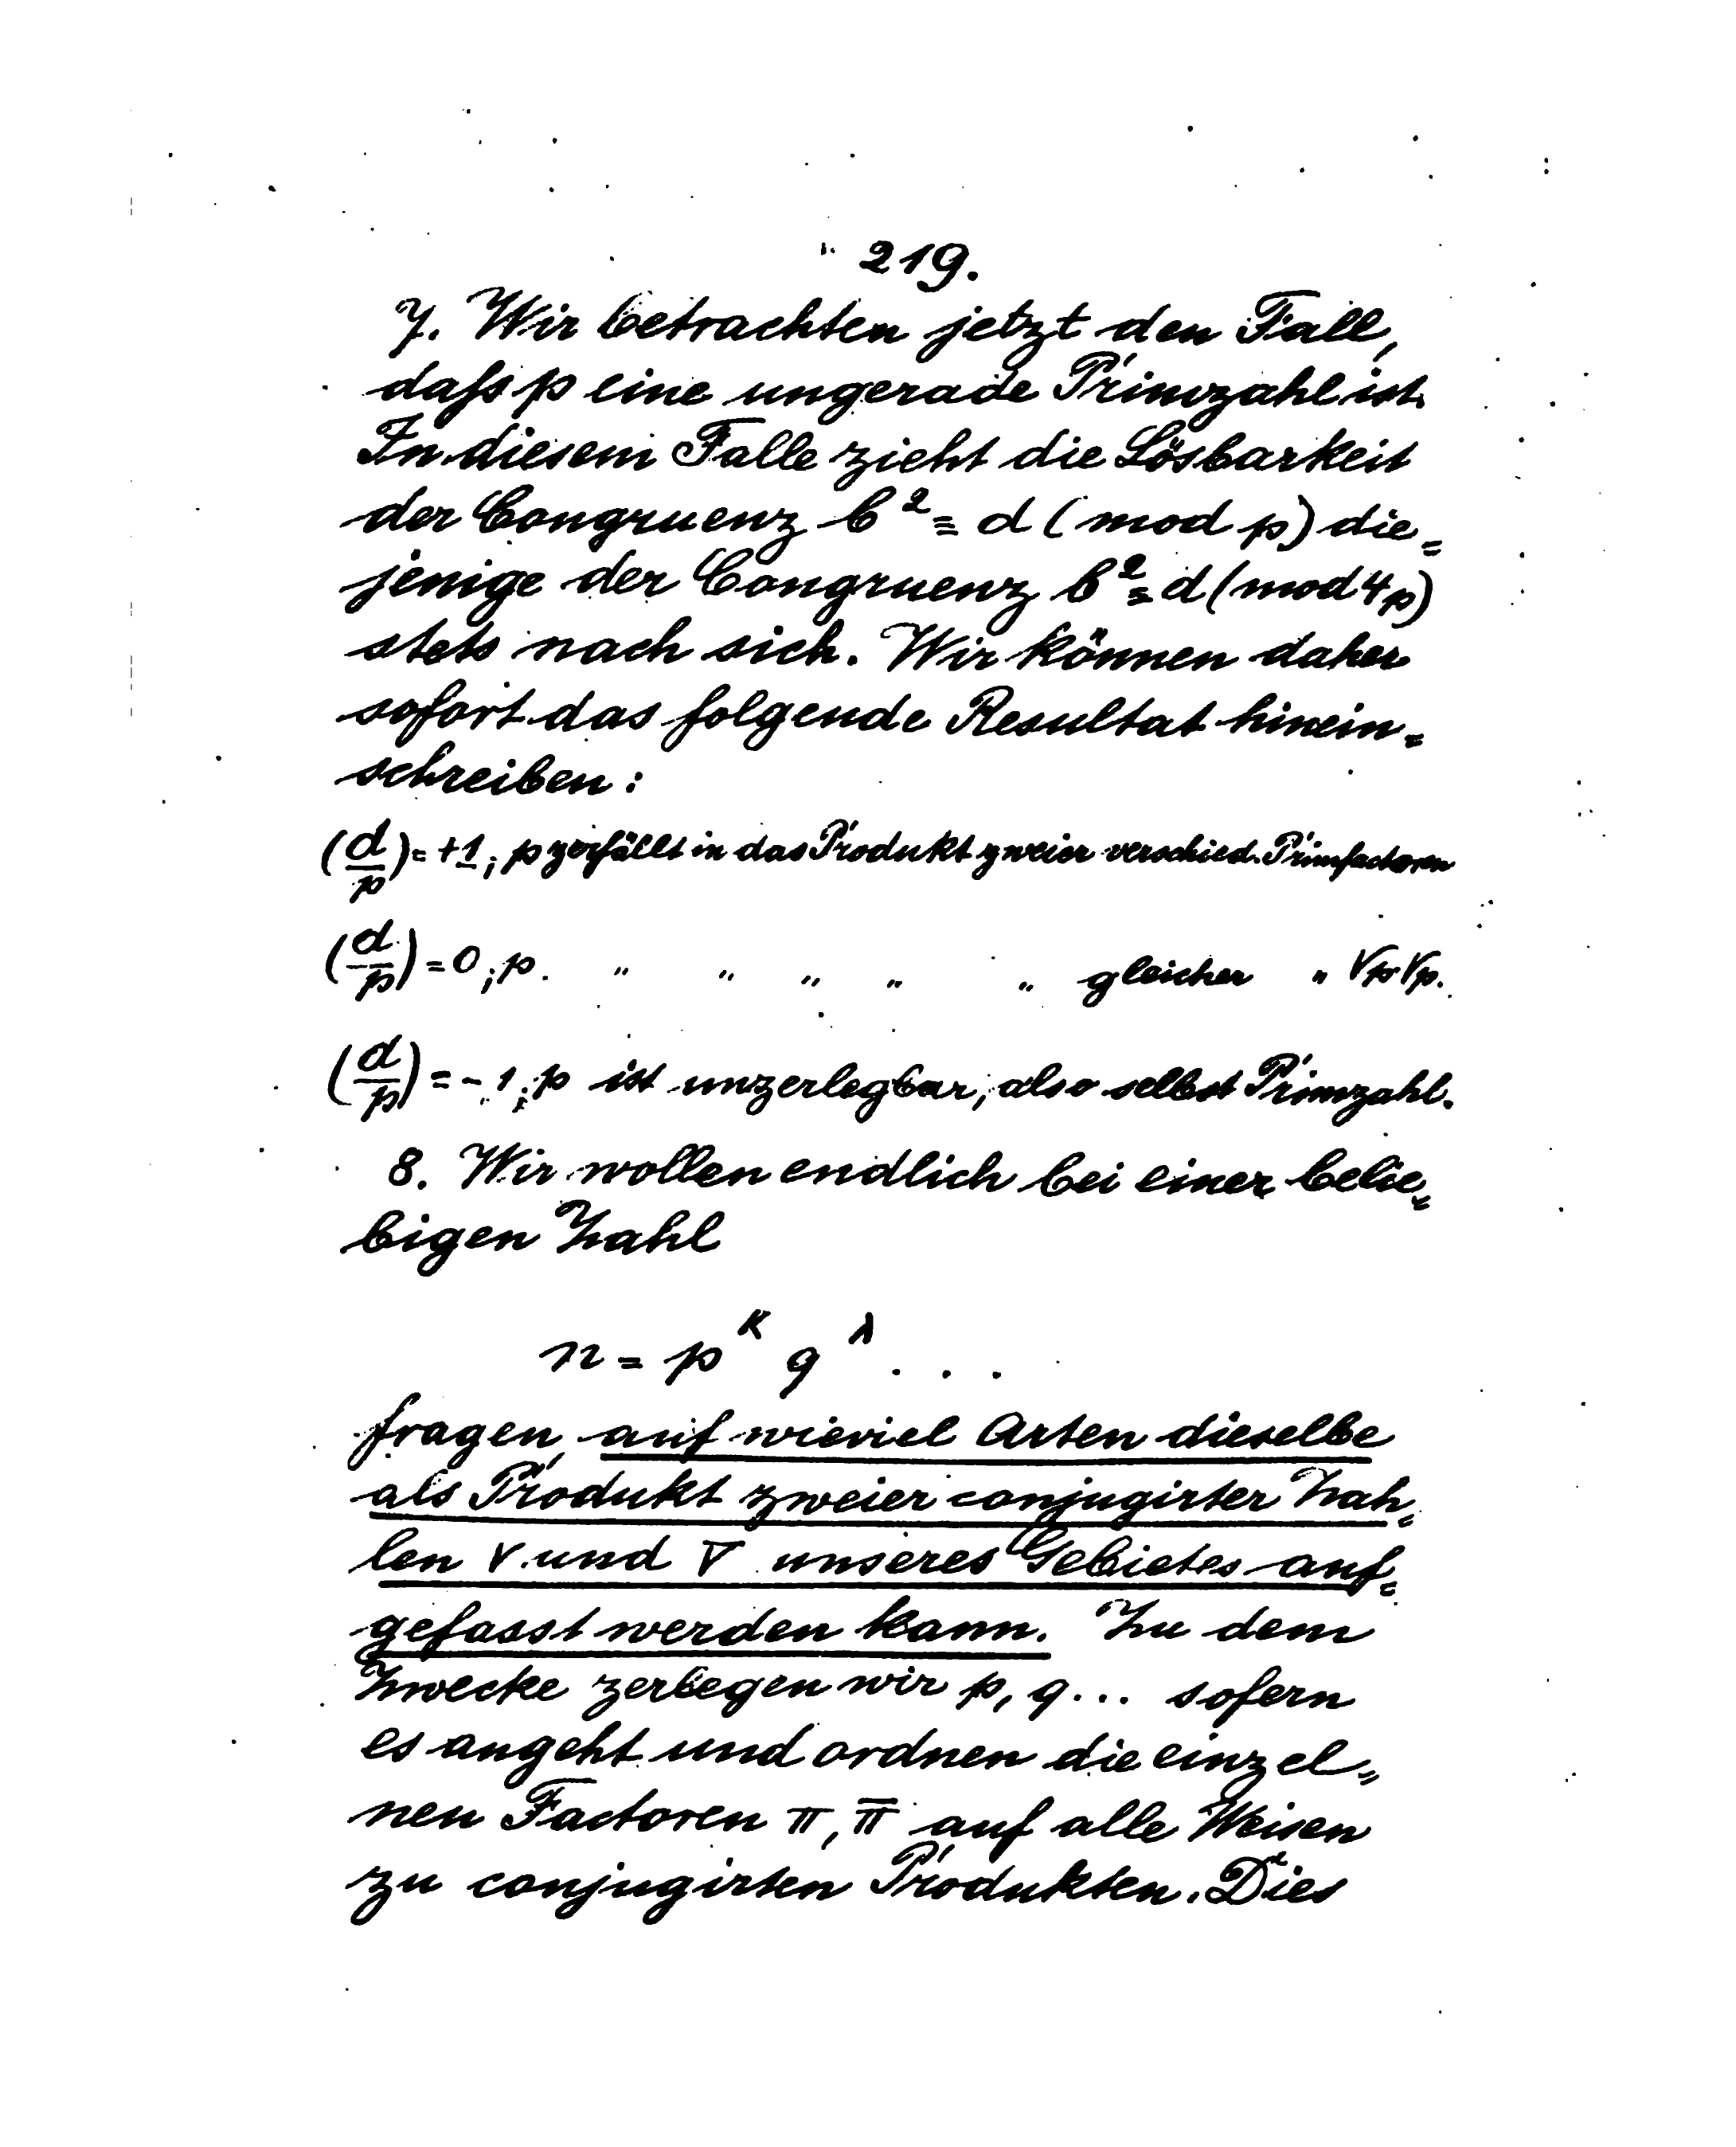 219.
7. Wir betrachten jetzt den Fall,
daſs p eine ungerade Primzahl ist.
In diesem Falle zieht die Lösbarkeit
der Congruenz b² ≡ d (mod p) die=
jenige der Congruenz b² ≡ d (mod 4p)
stets nach sich. Wir können daher
sofort das folgende Resultat hinein=
schreiben:
(d/p) = +1; p zerfällt in das Produkt zweier verschied. Primfactoren
(d/p) = 0; p. " " " " " gleicher " √p·√p.
(d/p) = -1; p ist unzerlegbar, also selbst Primzahl.
8. Wir wollen endlich bei einer belie=
bigen Zahl
n = p^κ q^λ . . .
fragen, auf wieviel Arten dieselbe
als Produkt zweier conjugirter Zah=
len v und v̅ unseres Gebietes auf=
gefasst werden kann. Zu dem
Zwecke zerlegen wir p, q... sofern
es angeht und ordnen die einzel=
nen Factoren π, π̅ auf alle Weisen
zu conjugirten Produkten. Dies